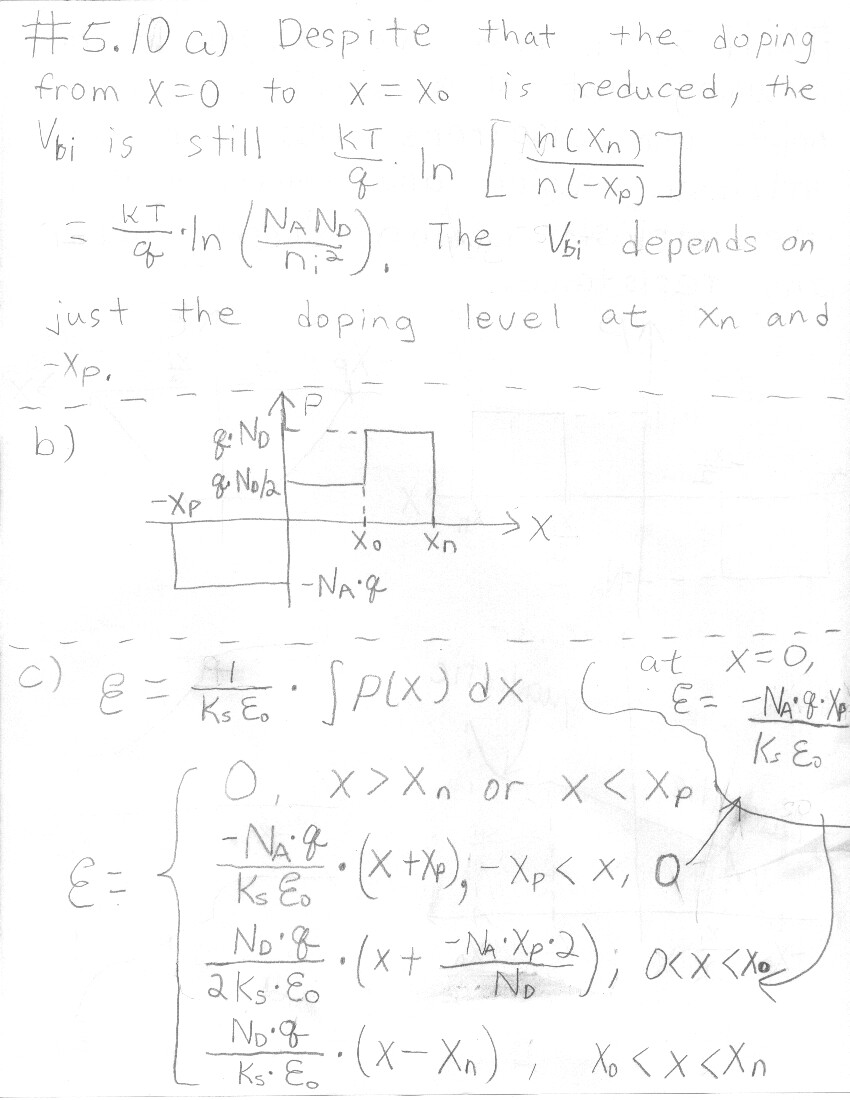 #5.10 a) Despite that the doping
from x=0 to x = x₀ is reduced, the
Vbi is still kT/q · ln [ n(xₙ) / n(-xₚ) ]
= kT/q · ln (N_A N_D / nᵢ²). The Vbi depends on
just the doping level at xₙ and
-xₚ.
b)
ρ
q·N_D
q·N_D/2
-xₚ
x₀ xₙ x
-N_A·q
c) ℰ = 1/(Kₛ ℰ₀) · ∫ρ(x) dx ( at x=0,
ℰ = -N_A·q·xₚ / (Kₛ ℰ₀)
0, x > xₙ or x < xₚ
ℰ = { -N_A·q / (Kₛ ℰ₀) · (x + xₚ), -xₚ < x, 0
N_D·q / (2Kₛ·ℰ₀) · (x + -N_A·xₚ·2 / N_D); 0<x<x₀
N_D·q / (Kₛ·ℰ₀) · (x - xₙ) ; x₀ < x < xₙ